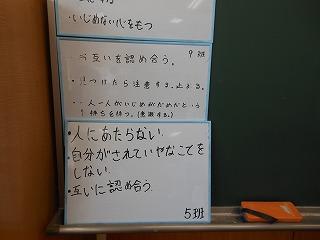 ・いじめない心をもつ
・お互いを認め合う。 9班
・見つけたら注意する。止める。
・一人一人がいじめがだめだという
気持ちを持つ。(意識する。)
・人にあたらない
・自分がされていやなことを
しない
・互いに認め合う
5班